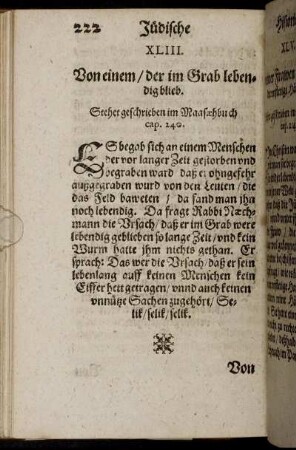 222 Jüdische
XLIII.
Von einem / der im Grab leben-
dig blieb.
Stehet geschrieben im Maasehbuch
cap. 242.
ES begab sich an einem Menschen
der vor langer Zeit gestorben vnd
begraben ward daß er ohngefehr
außgegraben wurd von den Leuten / die
das Feld baweten / da fand man jhn
noch lebendig. Da fragt Rabbi Nach-
mann die Vrsach / daß er im Grab were
lebendig geblieben so lange Zeit / vnd kein
Wurm hatte jhm nichts gethan. Er
sprach: Das wer die Vrsach / daß er sein
lebenlang auff keinen Menschen kein
Eiffer heit getragen / vnnd auch keinen
vnnütze Sachen zugehört / Se-
lik / selik / selik.
Von
Histori
XLV.